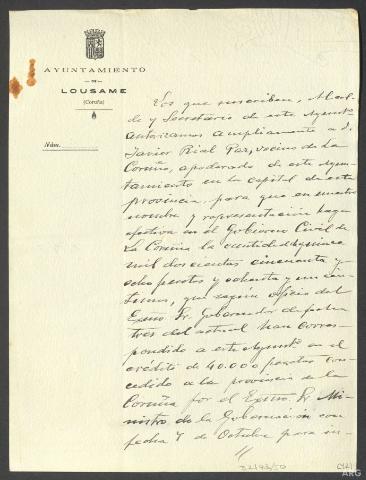 AYUNTAMIENTO
DE
LOUSAME
(Coruña)
Núm.
Los que suscriben, Alcal-
de y Secretario de este Ayuntº
autorizamos ampliamente a D.
Javier Rial Paz, vecino de La
Coruña, apoderado de este Ayun-
tamiento en la capital de esta
provincia, para que en nuestro
nombre y representación haga
efectiva en el Gobierno Civil de
La Coruña la cantidad de
mil doscientas cincuenta y
ocho pesetas y ochenta y un cén-
timos, que según oficio del
Exmo. Sr. Gobernador de fecha
tres del actual han corres-
pondido a este Ayuntº en el
crédito de 40.000 pesetas con-
cedido a la provincia de la
Coruña por el Exmo. Sr. Mi-
nistro de la Gobernación con
fecha 7 de Octubre para in-